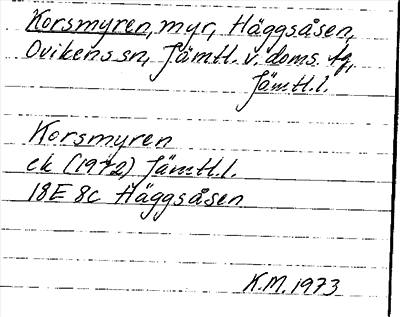 Korsmyren, myr, Häggsåsen,
Ovikens sn, Jämtl. v. doms. tg,
Jämtl. l.
Korsmyren
ek (1972) Jämtl. l.
18E 8c Häggsåsen
K.M. 1973